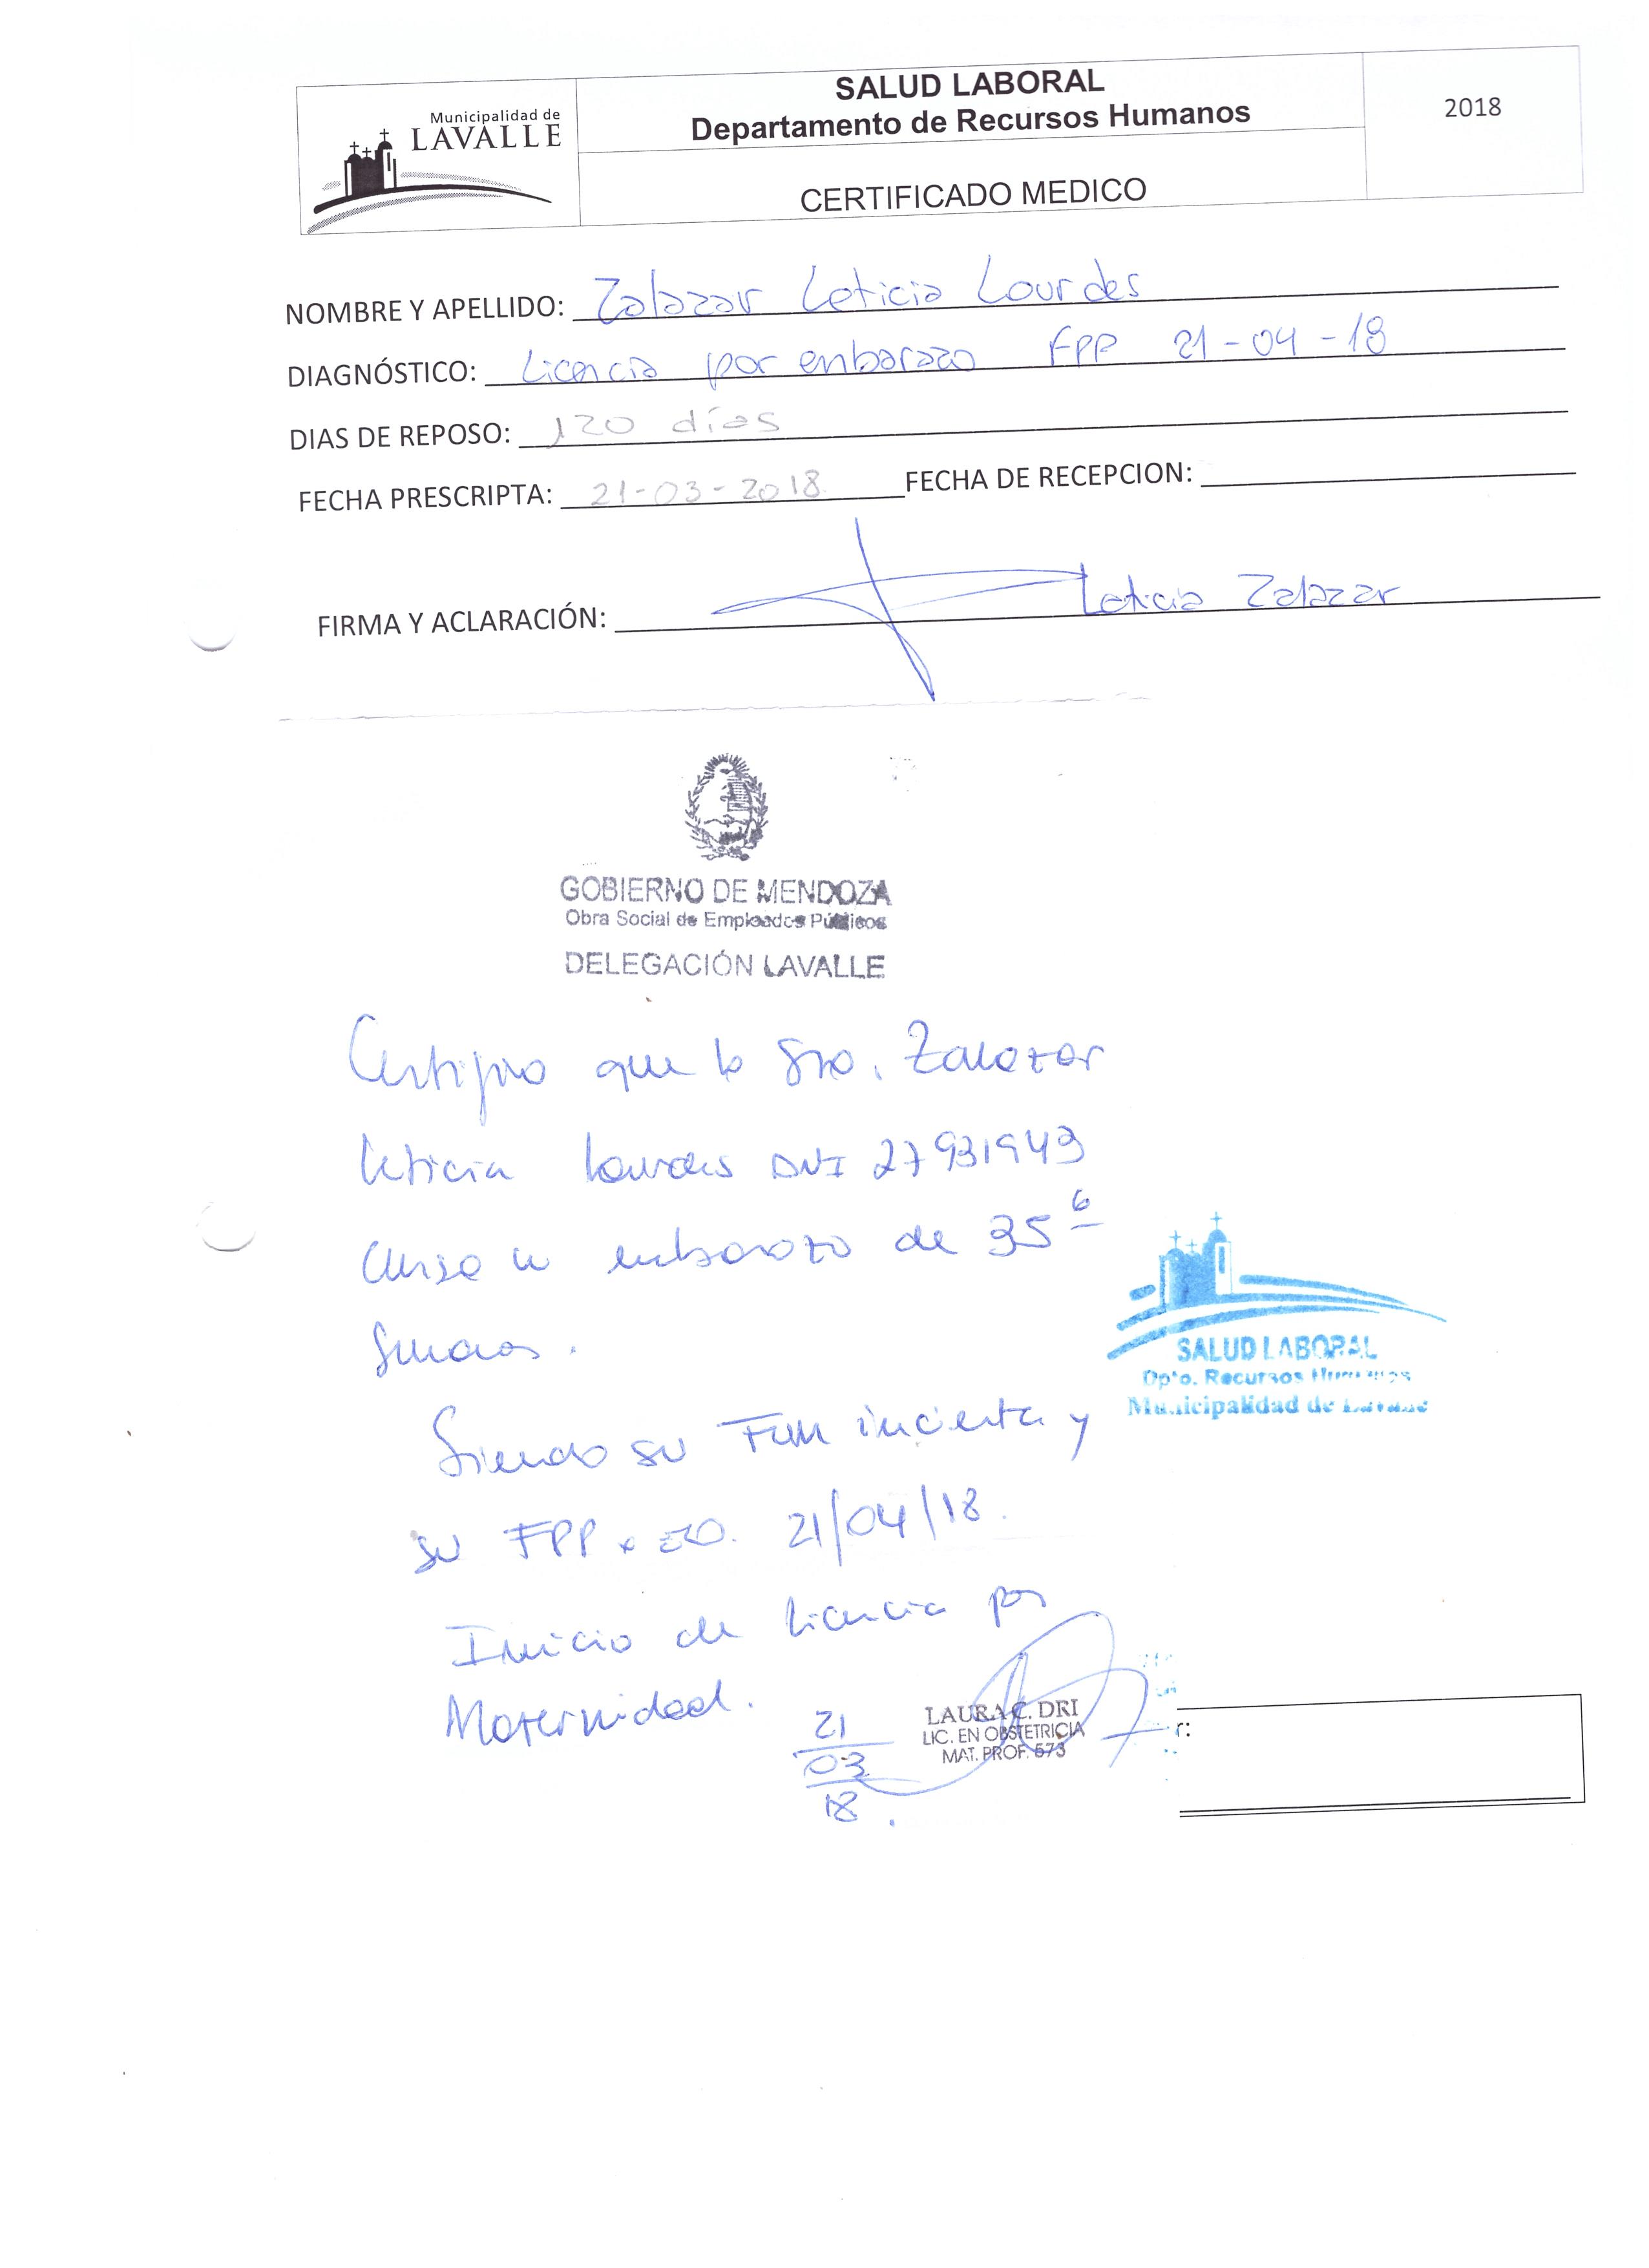 Municipalidad de
LAVALLE
SALUD LABORAL
Departamento de Recursos Humanos
CERTIFICADO MEDICO
2018
NOMBRE Y APELLIDO: Zalazar Leticia Lourdes
DIAGNÓSTICO: Licencia por embarazo FPP 21-04-18
DIAS DE REPOSO: 120 días
FECHA PRESCRIPTA: 21-03-2018 FECHA DE RECEPCION:
FIRMA Y ACLARACIÓN: Leticia Zalazar
GOBIERNO DE MENDOZA
Obra Social de Empleados Públicos
DELEGACIÓN LAVALLE
Certifico que la Sra. Zalazar
Leticia Lourdes DNI 27931943
cursa un embarazo de 35 6
semanas.
Siendo su FUM incierta y
su FPP x eco. 21/04/18.
Inicio de licencia por
Maternidad.
21
03
18
LAURA C. DRI
LIC. EN OBSTETRICIA
MAT. PROF. 573
SALUD LABORAL
Dpto. Recursos Humanos
Municipalidad de Lavalle
r: